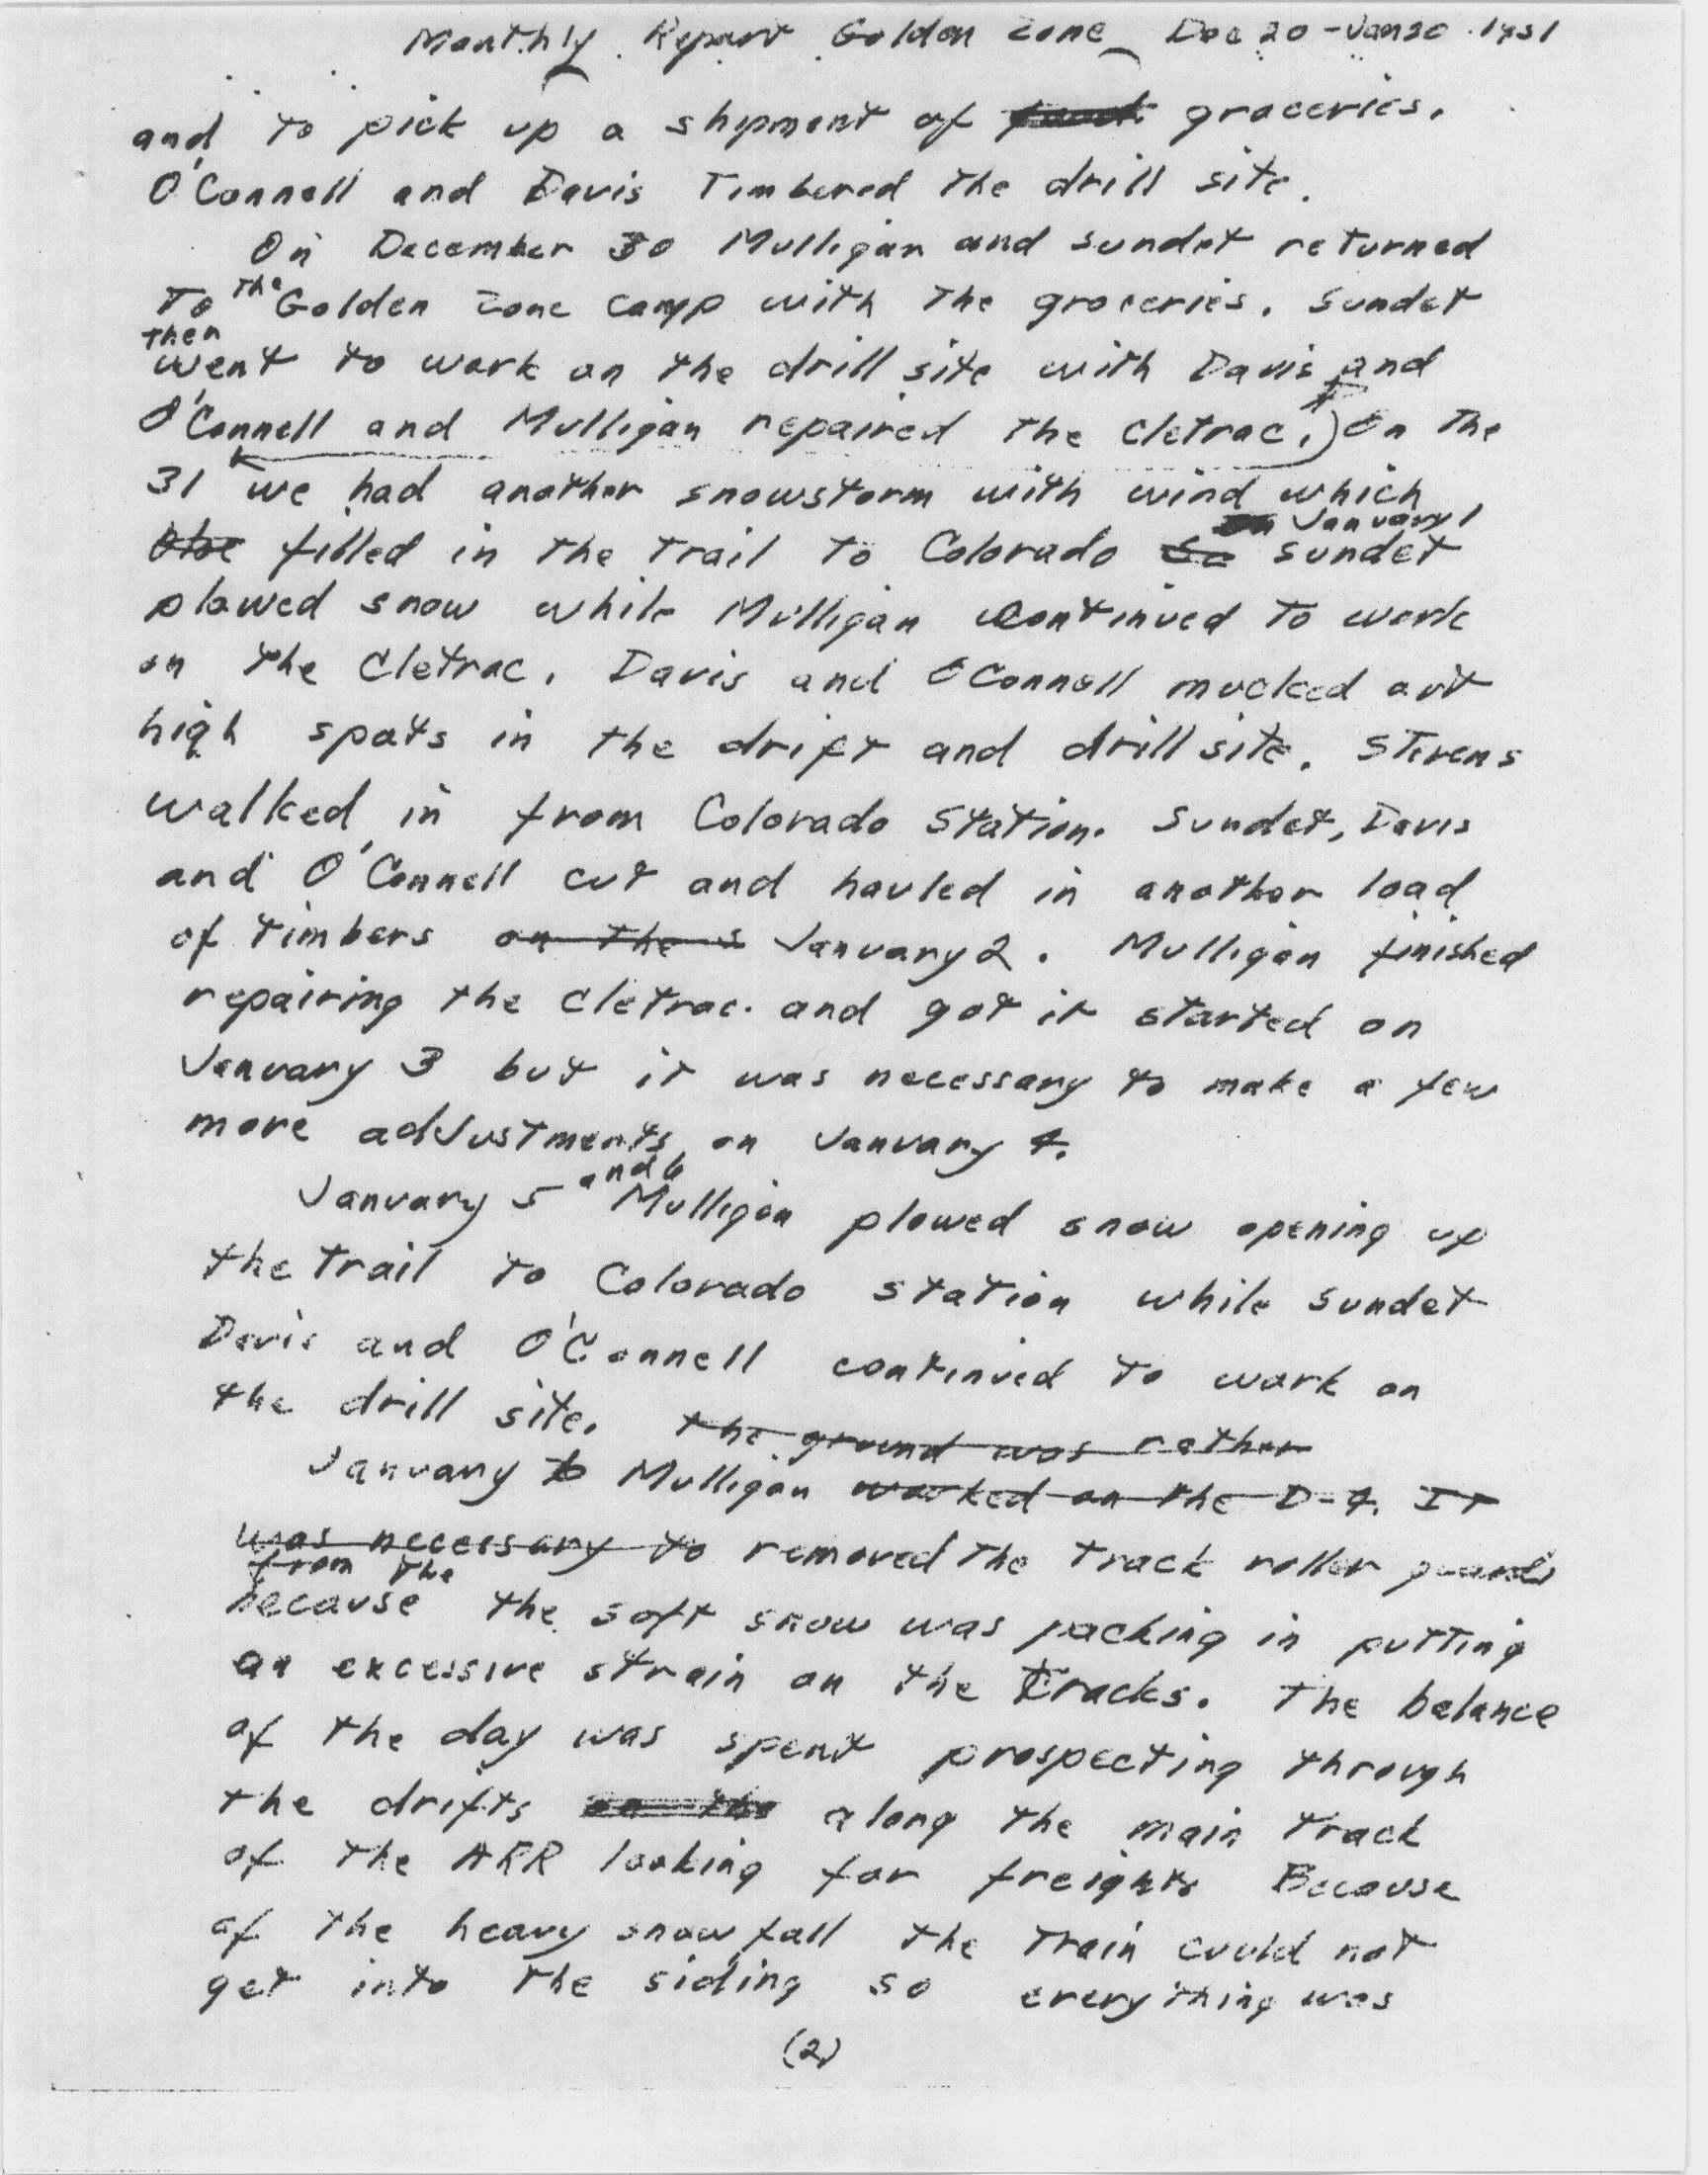 Monthly Report Golden Zone Dec 20 - Jan 20 1951
and to pick up a shipment of groceries.
O'Connell and Davis Timbered the drill site.
On December 30 Mulligan and Sundet returned
To the Golden Zone camp with the groceries. Sundet
then
went to work on the drill site with Davis and
O'Connell and Mulligan repaired the Cletrac. On the
31 we had another snowstorm with wind which
on January 1
filled in the trail to Colorado so Sundet
plowed snow while Mulligan continued to work
on the Cletrac. Davis and O'Connell mucked out
high spots in the drift and drill site. Stevens
walked in from Colorado Station. Sundet, Davis
and O'Connell cut and hauled in another load
of timbers on the s January 2. Mulligan finished
repairing the Cletrac. and got it started on
January 3 but it was necessary to make a few
more adjustments on January 4.
and 6
January 5 Mulligan plowed snow opening up
the trail to Colorado Station while Sundet
Davis and O'Connell continued to work on
the drill site. the ground was rather
January 6 Mulligan worked on the D-4. It
was necessary to removed the track roller guards
from the
because the soft snow was packing in putting
an excessive strain on the tracks. The balance
of the day was spent prospecting through
the drifts on the along the main track
of the ARR looking for freight. Because
of the heavy snowfall the train could not
get into the siding so everything was
(2)